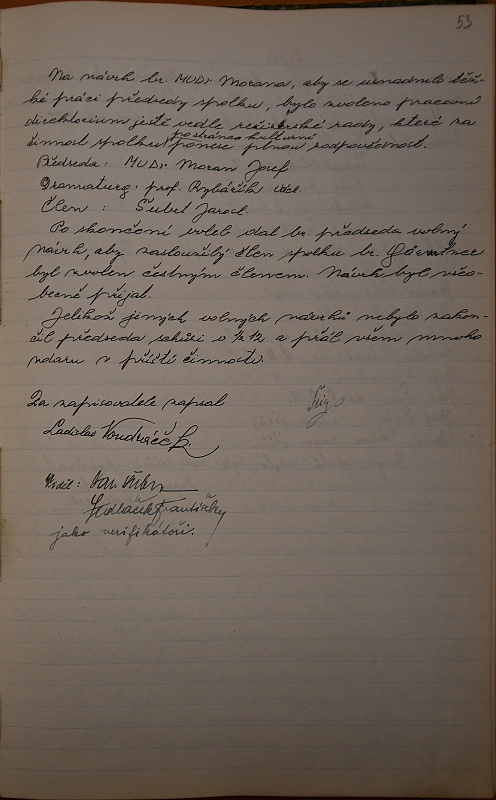 53
Na návrh br. MUDr Morana, aby se usnadnila těž-
ké práci předsedy spolku, bylo zvoleno pracovní
direktorium jistě vedle režisérské rady, které za
po stránce kulturní
činnost spolku ponese plnou zodpovědnost.
Předseda: MUDr Moran Josef
Dramaturg: prof. Rybářík
Člen : Šubrt Jarosl.
Po skončení voleb dal br. předseda volný
návrh, aby zasloužilý člen spolku br.
byl zvolen čestným členem. Návrh byl všeo-
becně přijat.
Jelikož jiných volných návrhů nebylo zakon-
čil předseda schůzi v 1/2 12 a přál všem mnoho
zdaru v příští činnosti.
Za zapisovatele zapsal
Ladislav Vondráček
Viděl: Jan
Sedláček František
jako verifikátoři.